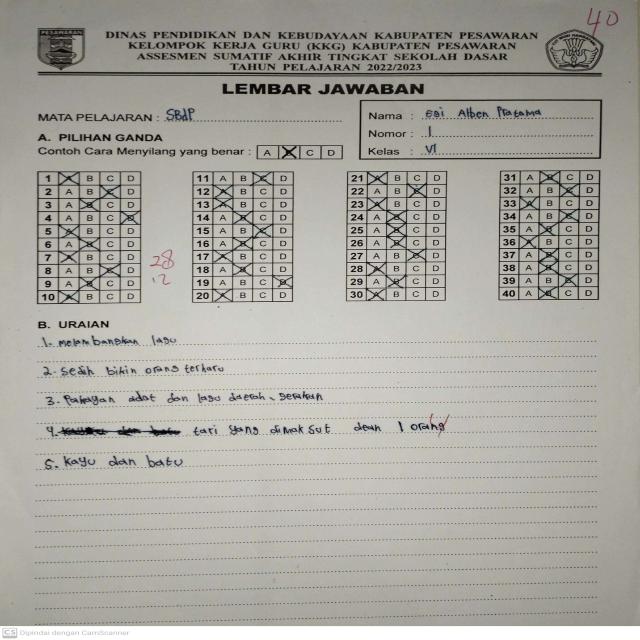 40
PESAWARAN
DINAS PENDIDIKAN DAN KEBUDAYAAN KABUPATEN PESAWARAN
KELOMPOK KERJA GURU (KKG) KABUPATEN PESAWARAN
ASSESMEN SUMATIF AKHIR TINGKAT SEKOLAH DASAR
TAHUN PELAJARAN 2022/2023
LEMBAR JAWABAN
MATA PELAJARAN : SBdP
Nama : Egi Alben Pratama
Nomor : 1
Kelas : VI
A. PILIHAN GANDA
Contoh Cara Menyilang yang benar : A B C D
1 A B C D
2 A B C D
3 A B C D
4 A B C D
5 A B C D
6 A B C D
7 A B C D
8 A B C D
9 A B C D
10 A B C D
28
12
11 A B C D
12 A B C D
13 A B C D
14 A B C D
15 A B C D
16 A B C D
17 A B C D
18 A B C D
19 A B C D
20 A B C D
21 A B C D
22 A B C D
23 A B C D
24 A B C D
25 A B C D
26 A B C D
27 A B C D
28 A B C D
29 A B C D
30 A B C D
31 A B C D
32 A B C D
33 A B C D
34 A B C D
35 A B C D
36 A B C D
37 A B C D
38 A B C D
39 A B C D
40 A B C D
B. URAIAN
1. melambangkan lagu
2. sedih bikin orang terharu
3. Pakayan adat dan lagu daerah, gerakan
4. tari yang dimaksut dean 1 orang
5. kayu dan batu
CS Dipindai dengan CamScanner